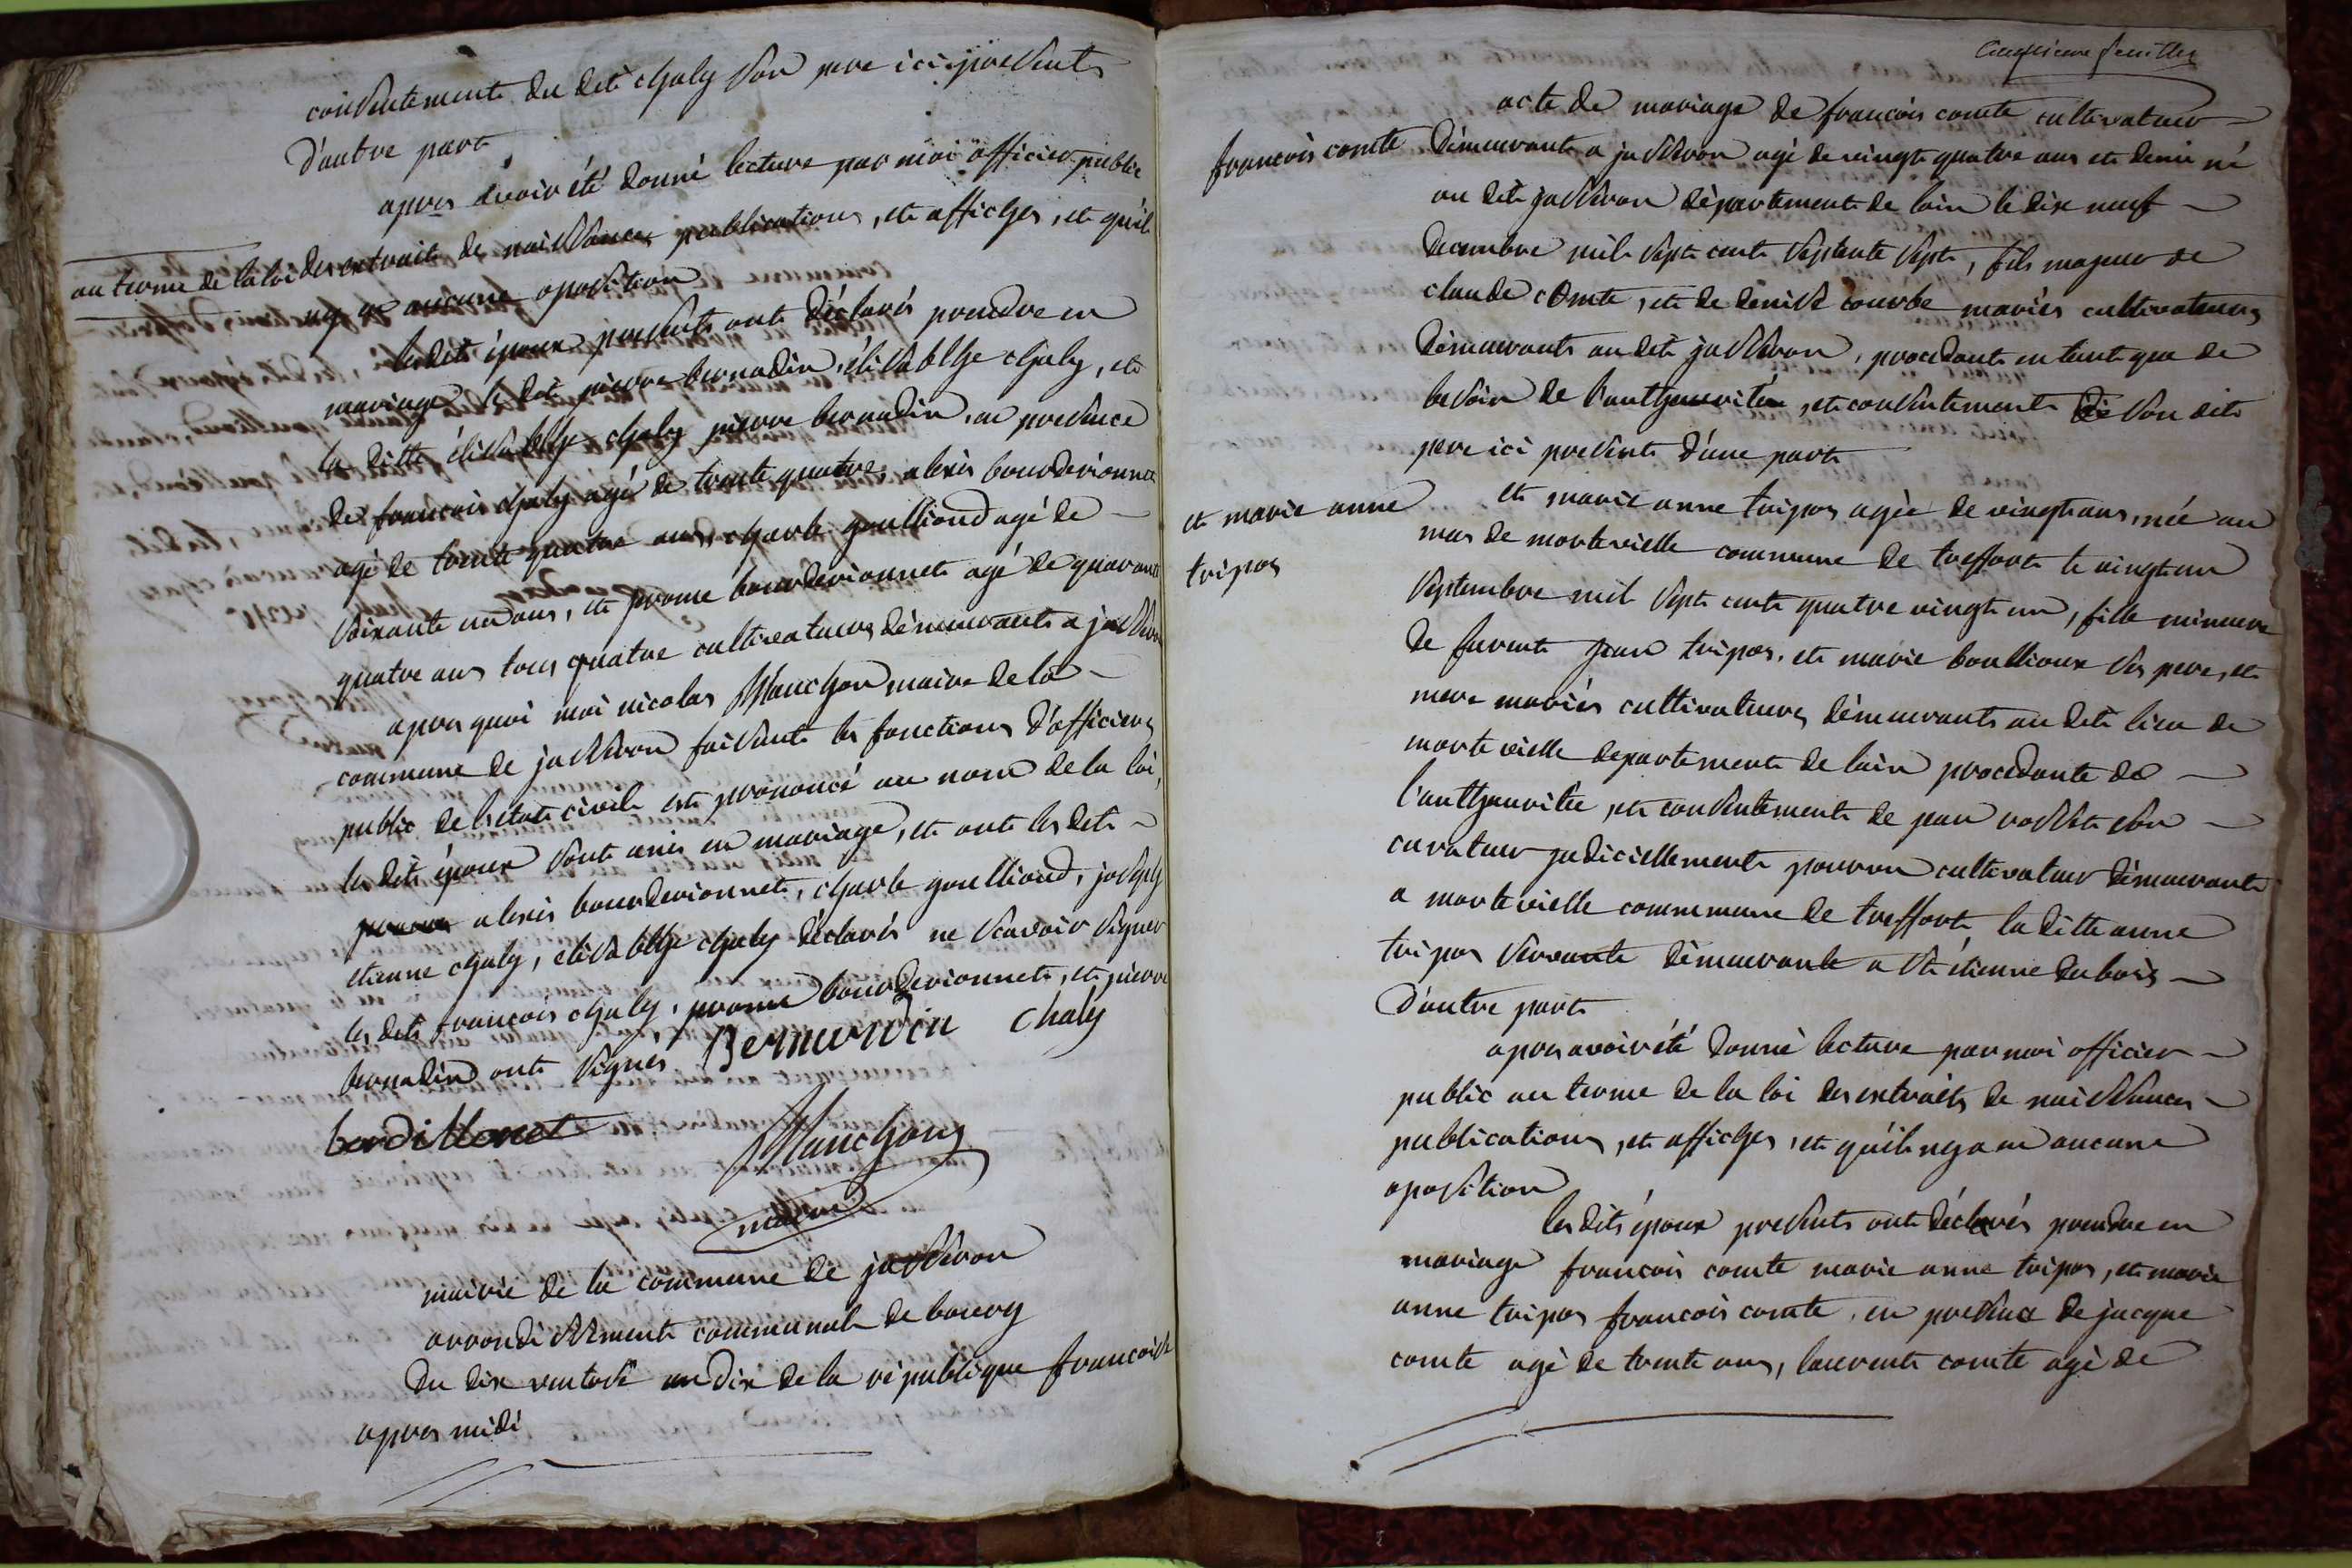 consentement du dit chaly son pere ici present
d'autre part
apres avoir été donné lecture par moi officier public
au terme de la loi des extrait de naissances publications, et affiches, et qu'il
ny ye aucune oposition
les dit époux presents ont déclarés prendre en
mariage le dit pierre bernadin, élisabethe chaly, et
la ditte élisabethe chaly pierre bernadin, en presence
de francois chaly agé de trente quatre, alexis bourderionnet
agé de trente quatre ans, charle goullioud agé de
soixante un ans, et prome bourderionnet agé de quarante
quatre ans tous quatre cultivateurs démeurants a jasseron
apres quoi moi nicolas Manchon maire de la
commune de jasseron faisant les fonctions d'officiers
public de l'etat civil est prononcé au nom de la loi,
les dit époux sont unis en mariage, et ont les dit
alexis bourderionnet, charle goulliaud, joseph
etienne chaly, elisabethe chaly déclarés ne scavoir signer
les dits francois chaly, prome bourderionnet, et pierre
bernadin ont signés Bernardin chaly
bordillonet Manchon
maire
mairie de la commune de jasseron
arrondissement communal de bourg
Du dix ventose an dix de la république francoise
apres midi
Cinquieme feuillet
acte de mariage de francois comte cultivateur
francois comte démeurant a jasseron agé de vingt quatre ans et demi né
au dit jasseron département de lain le dix neuf
decembre mil sept cent septente sept, fils majeur de
claude comte, et de denise courbe mariés cultivateurs
démeurants au dit jasseron, procedant en tant que de
besoin de l'authourité, et consentement de son dit
pere ici present d'une part
et marie anne et marie anne tripos agée de vingt ans, née au
mas de mortevielle commune de treffort le vingt un
tripos
septembre mil sept cent quatre vingt un, fille mineure
de furent jean tripos, et marie boullioux ses pere, et
mere mariés cultivateurs démeurants au dit lieu de
morte vielle departement de lain procedante de
l'authourités, et consentement de jean rosset son
curateur judiciellement pourvu cultivateur démeurant
a morte vielle commune de treffort la ditte anne
tripos servante démeurante a St étienne du bois
d'autre part
apres avoir été donné lecture par moi officier
public au terme de la loi des extraits de naissances
publications, et affiches, et qu'il ny a eu aucune
oposition
les dits époux presents ont déclarés prendre en
mariage francois comte marie anne tripos, et marie
anne tripos francois comte, en presence de jacque
comte agé de trente ans, laurent comte agé de